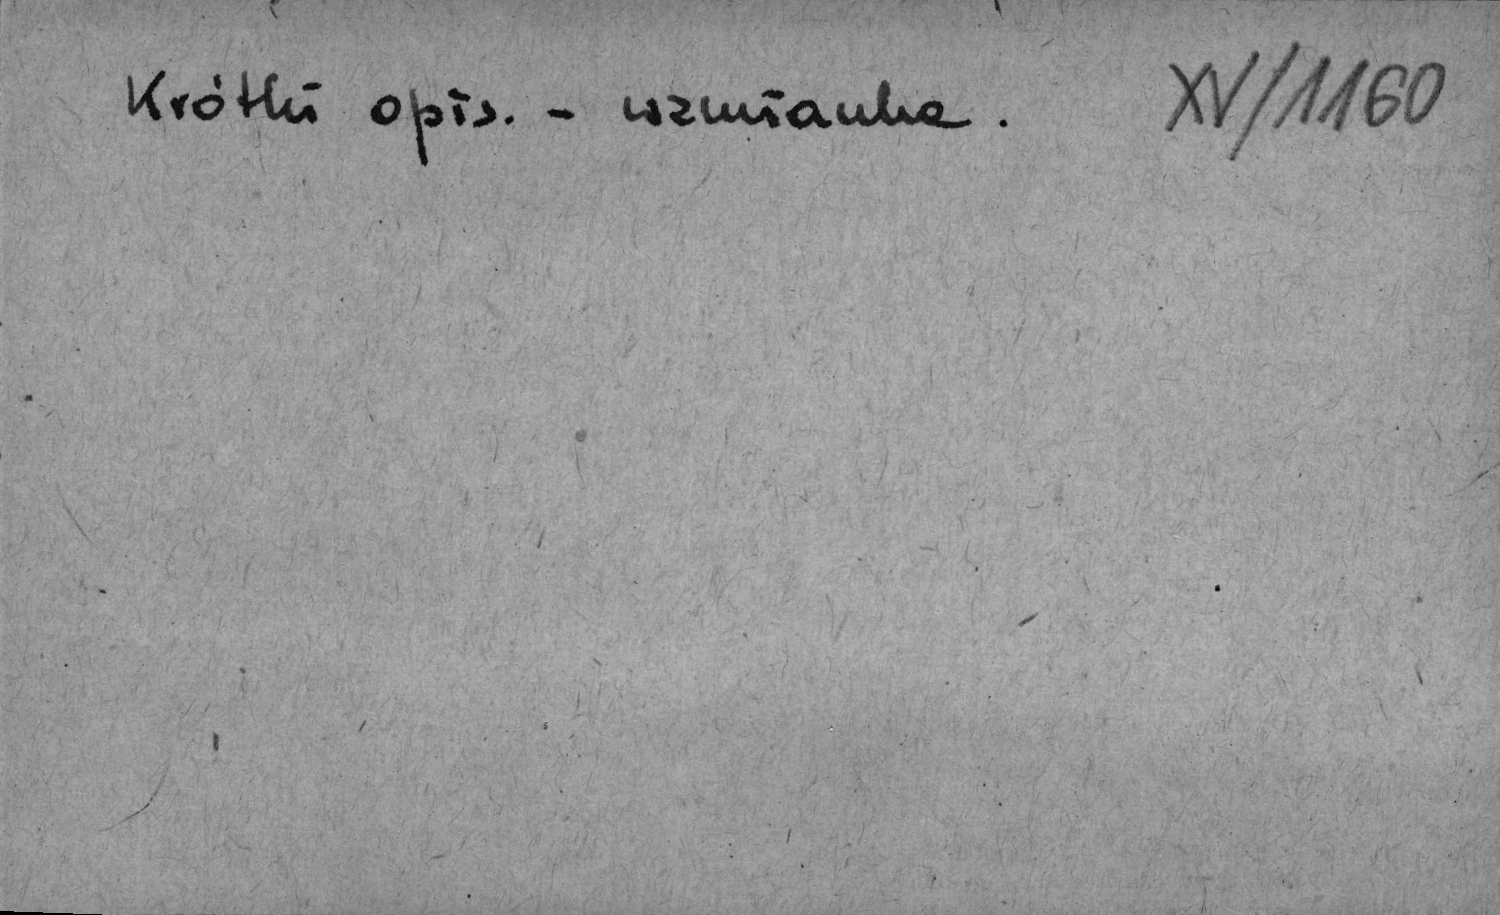 Krótki opis. - wzmianka.
XV/1160